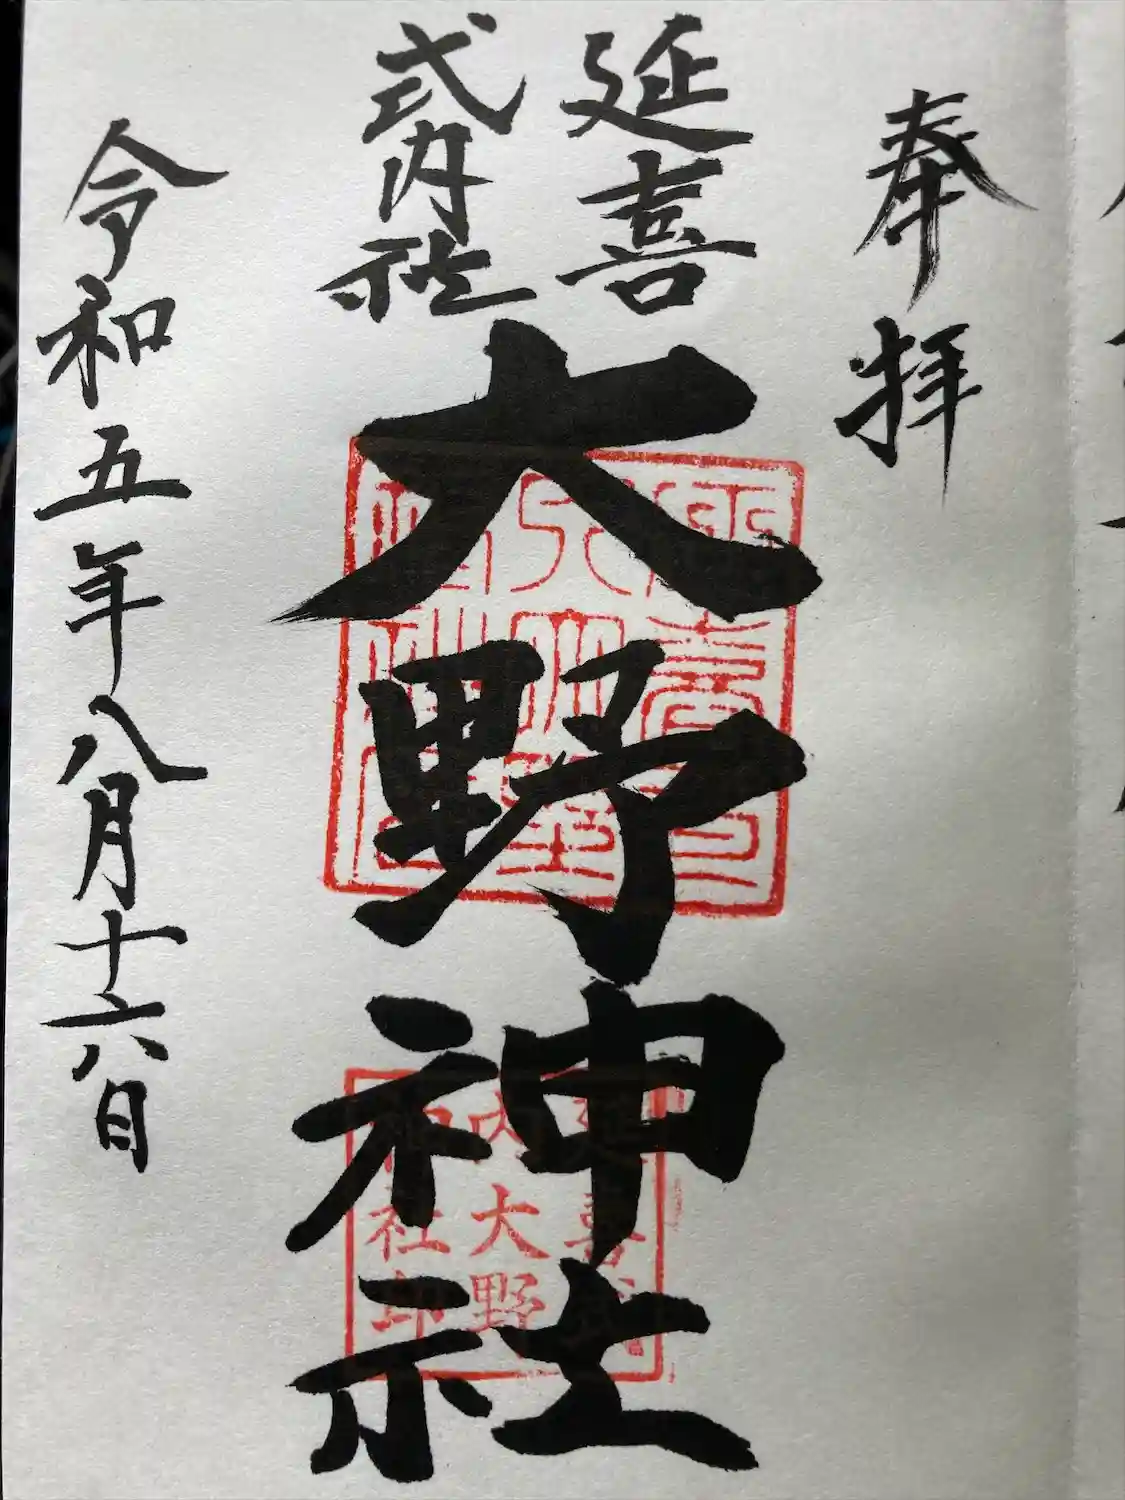 奉拝
延喜
式内社
大野神社
令和五年八月十六日
延喜式
内大野
神社印